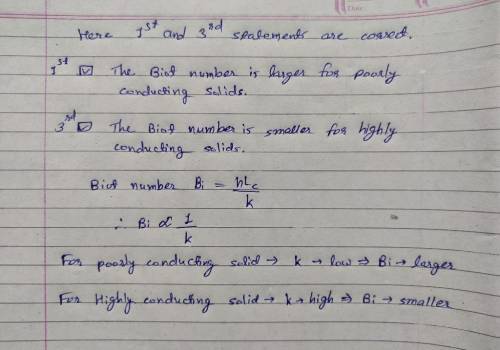 Here 1st and 3rd statements are correct.
1st ☑ The Biot number is larger for poorly
conducting solids.
3rd ☑ The Biot number is smaller for highly
conducting solids.
Biot number Bi = hLc/k
∴ Bi ∝ 1/k
For poorly conducting solid → k → low ⇒ Bi → larger
For Highly conducting solid → k → high ⇒ Bi → smaller